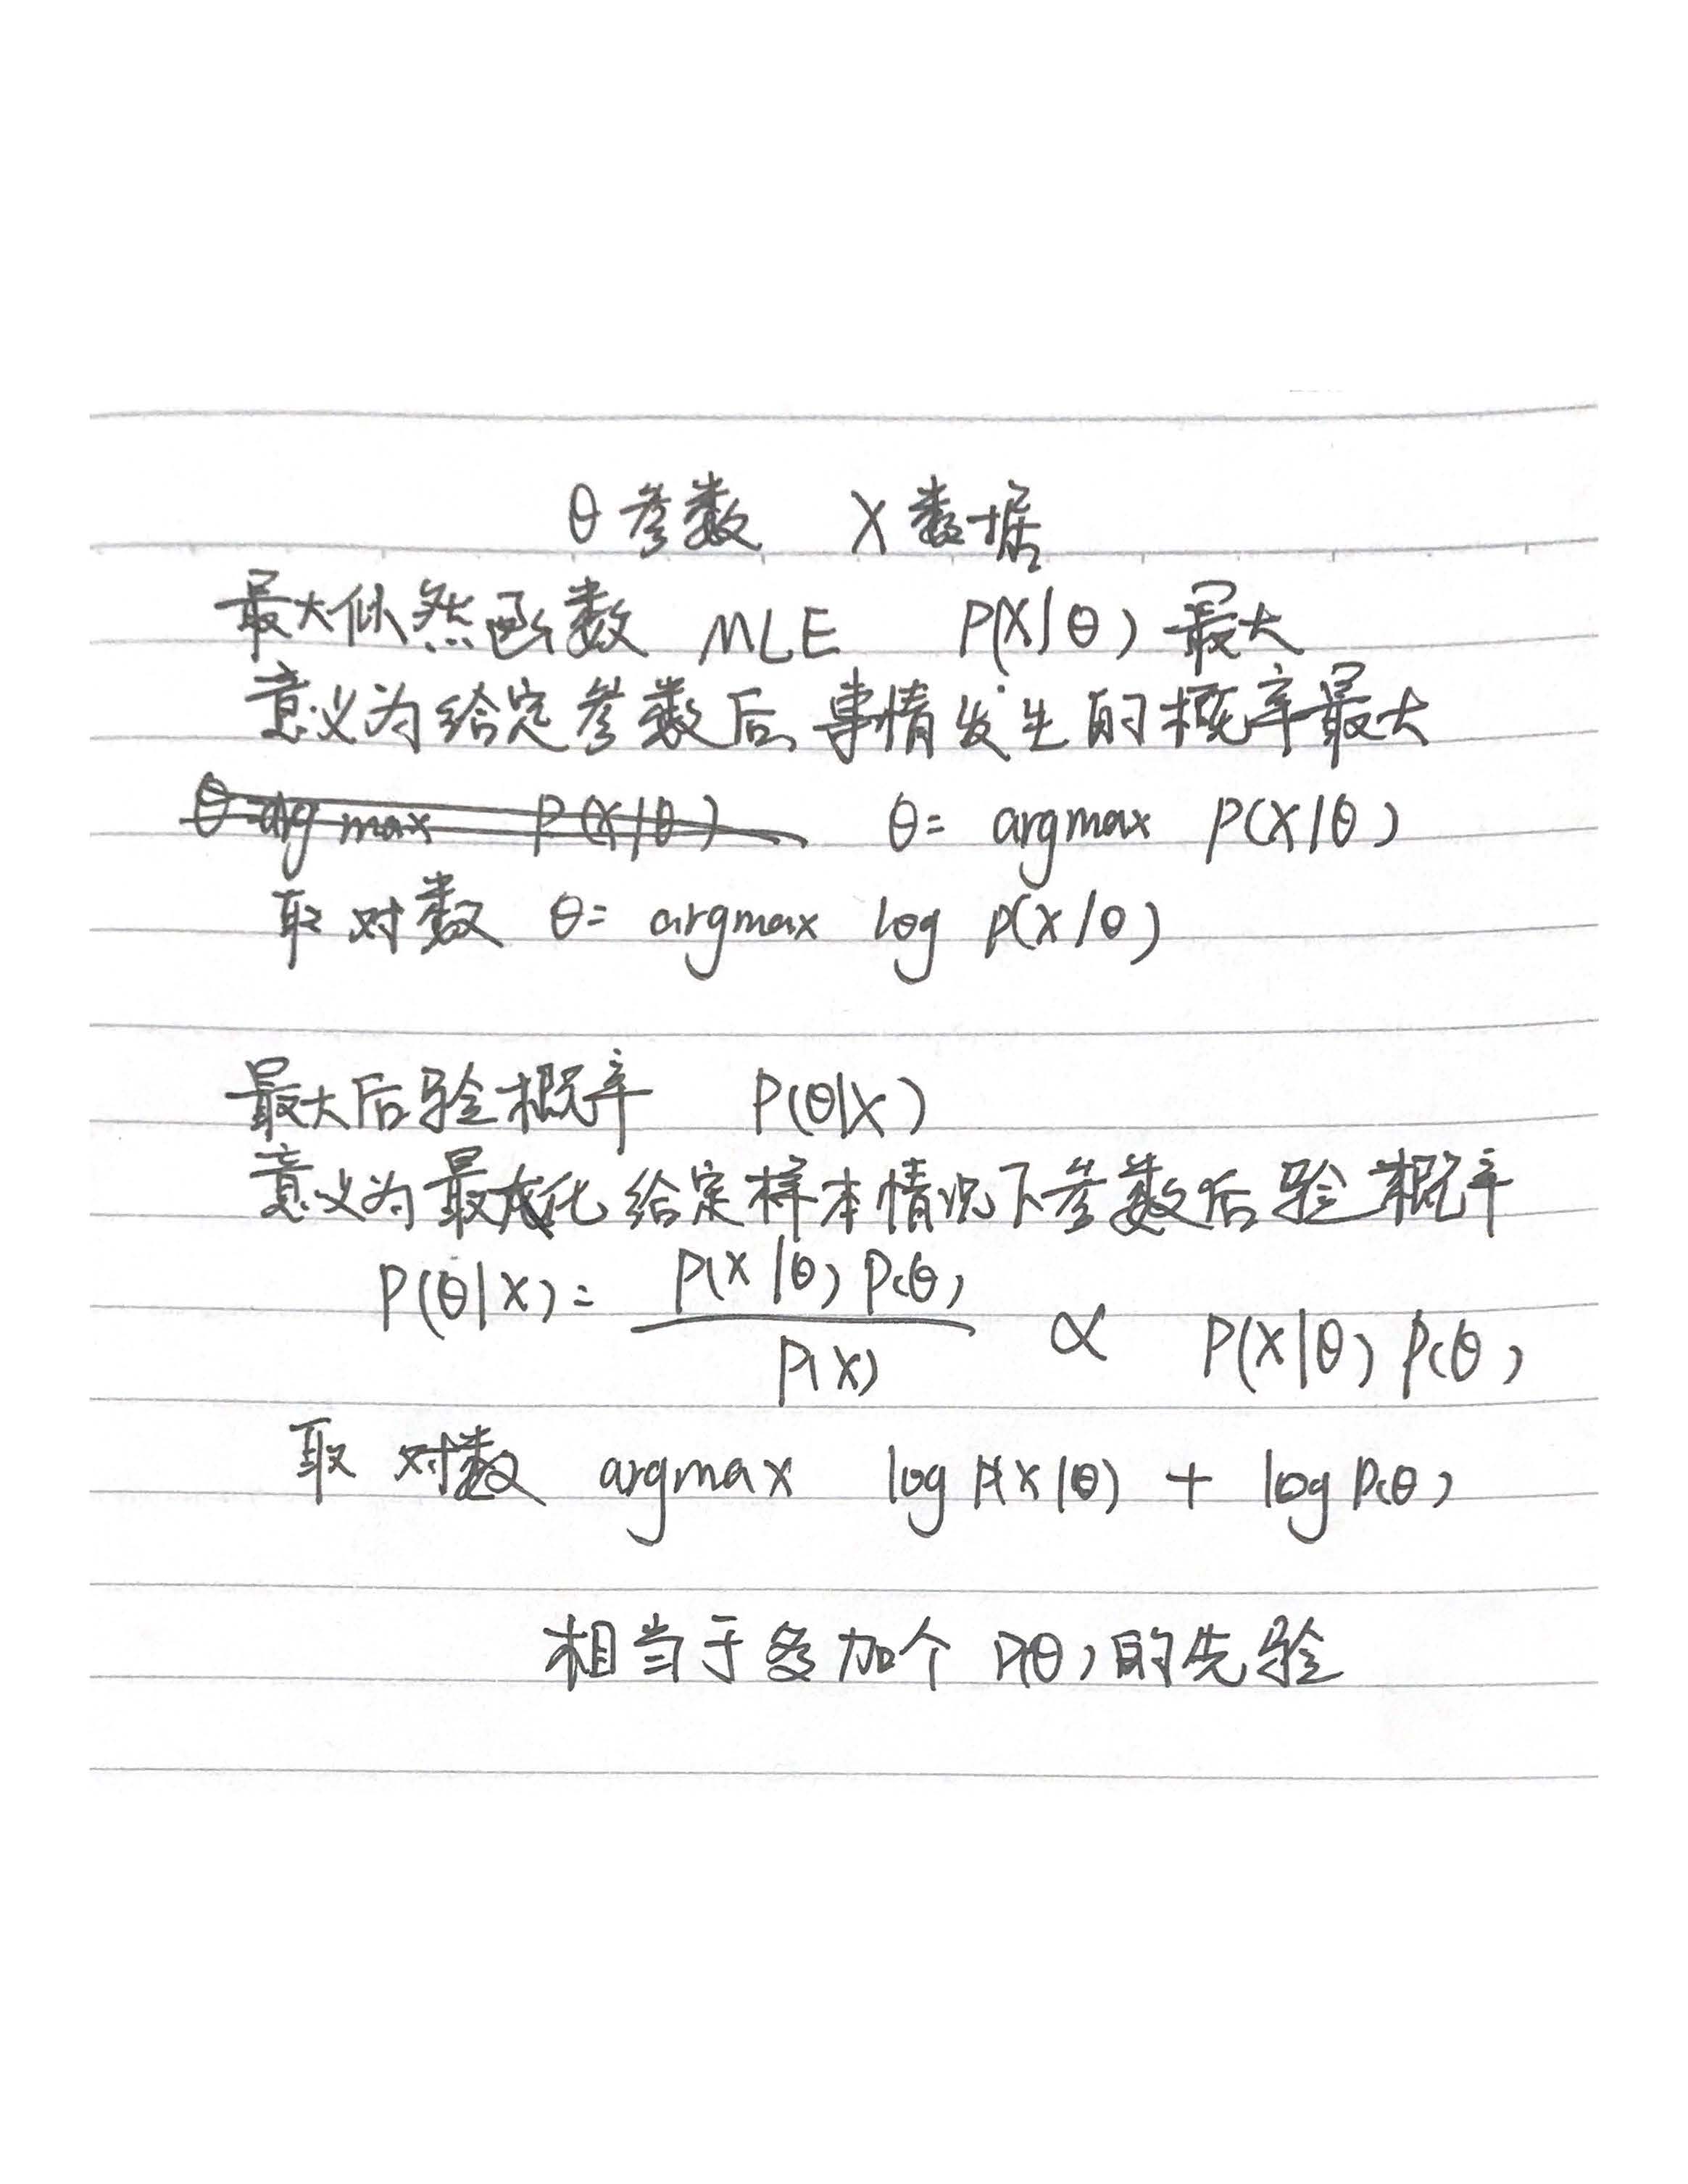 θ参数 X数据
最大似然函数 MLE P(X|θ) 最大
意义为给定参数后,事情发生的概率最大
θ=argmax P(X|θ) θ= argmax P(X|θ)
取对数 θ= argmax log P(X|θ)
最大后验概率 P(θ|X)
意义为最大化给定样本情况下参数后验概率
P(θ|X) = P(X|θ) P(θ) / P(X) ∝ P(X|θ) P(θ)
取对数 argmax log P(X|θ) + log P(θ)
相当于多加个 P(θ) 的先验